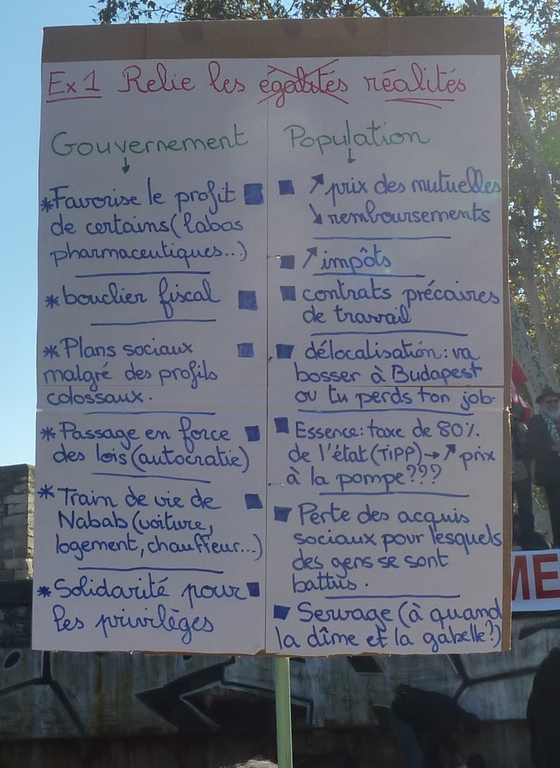 Ex 1 Relie les égalités réalités
Gouvernement
↓
*Favorise le profit
de certains (labos
pharmaceutiques...)
*bouclier fiscal
*Plans sociaux
malgré des profits
colossaux.
*Passage en force
des lois (autocratie)
*Train de vie de
Nabab (voiture,
logement, chauffeur...)
*Solidarité pour
les privilèges
Population
↓
↗ prix des mutuelles
↘ remboursements
↗ impôts
contrats précaires
de travail
délocalisation : va
bosser à Budapest
ou tu perds ton job.
Essence : taxe de 80%
de l'état (TIPP) → ↗ prix
à la pompe???
Perte des acquis
sociaux pour lesquels
des gens se sont
battus.
Servage (à quand
la dîme et la gabelle?)
ME